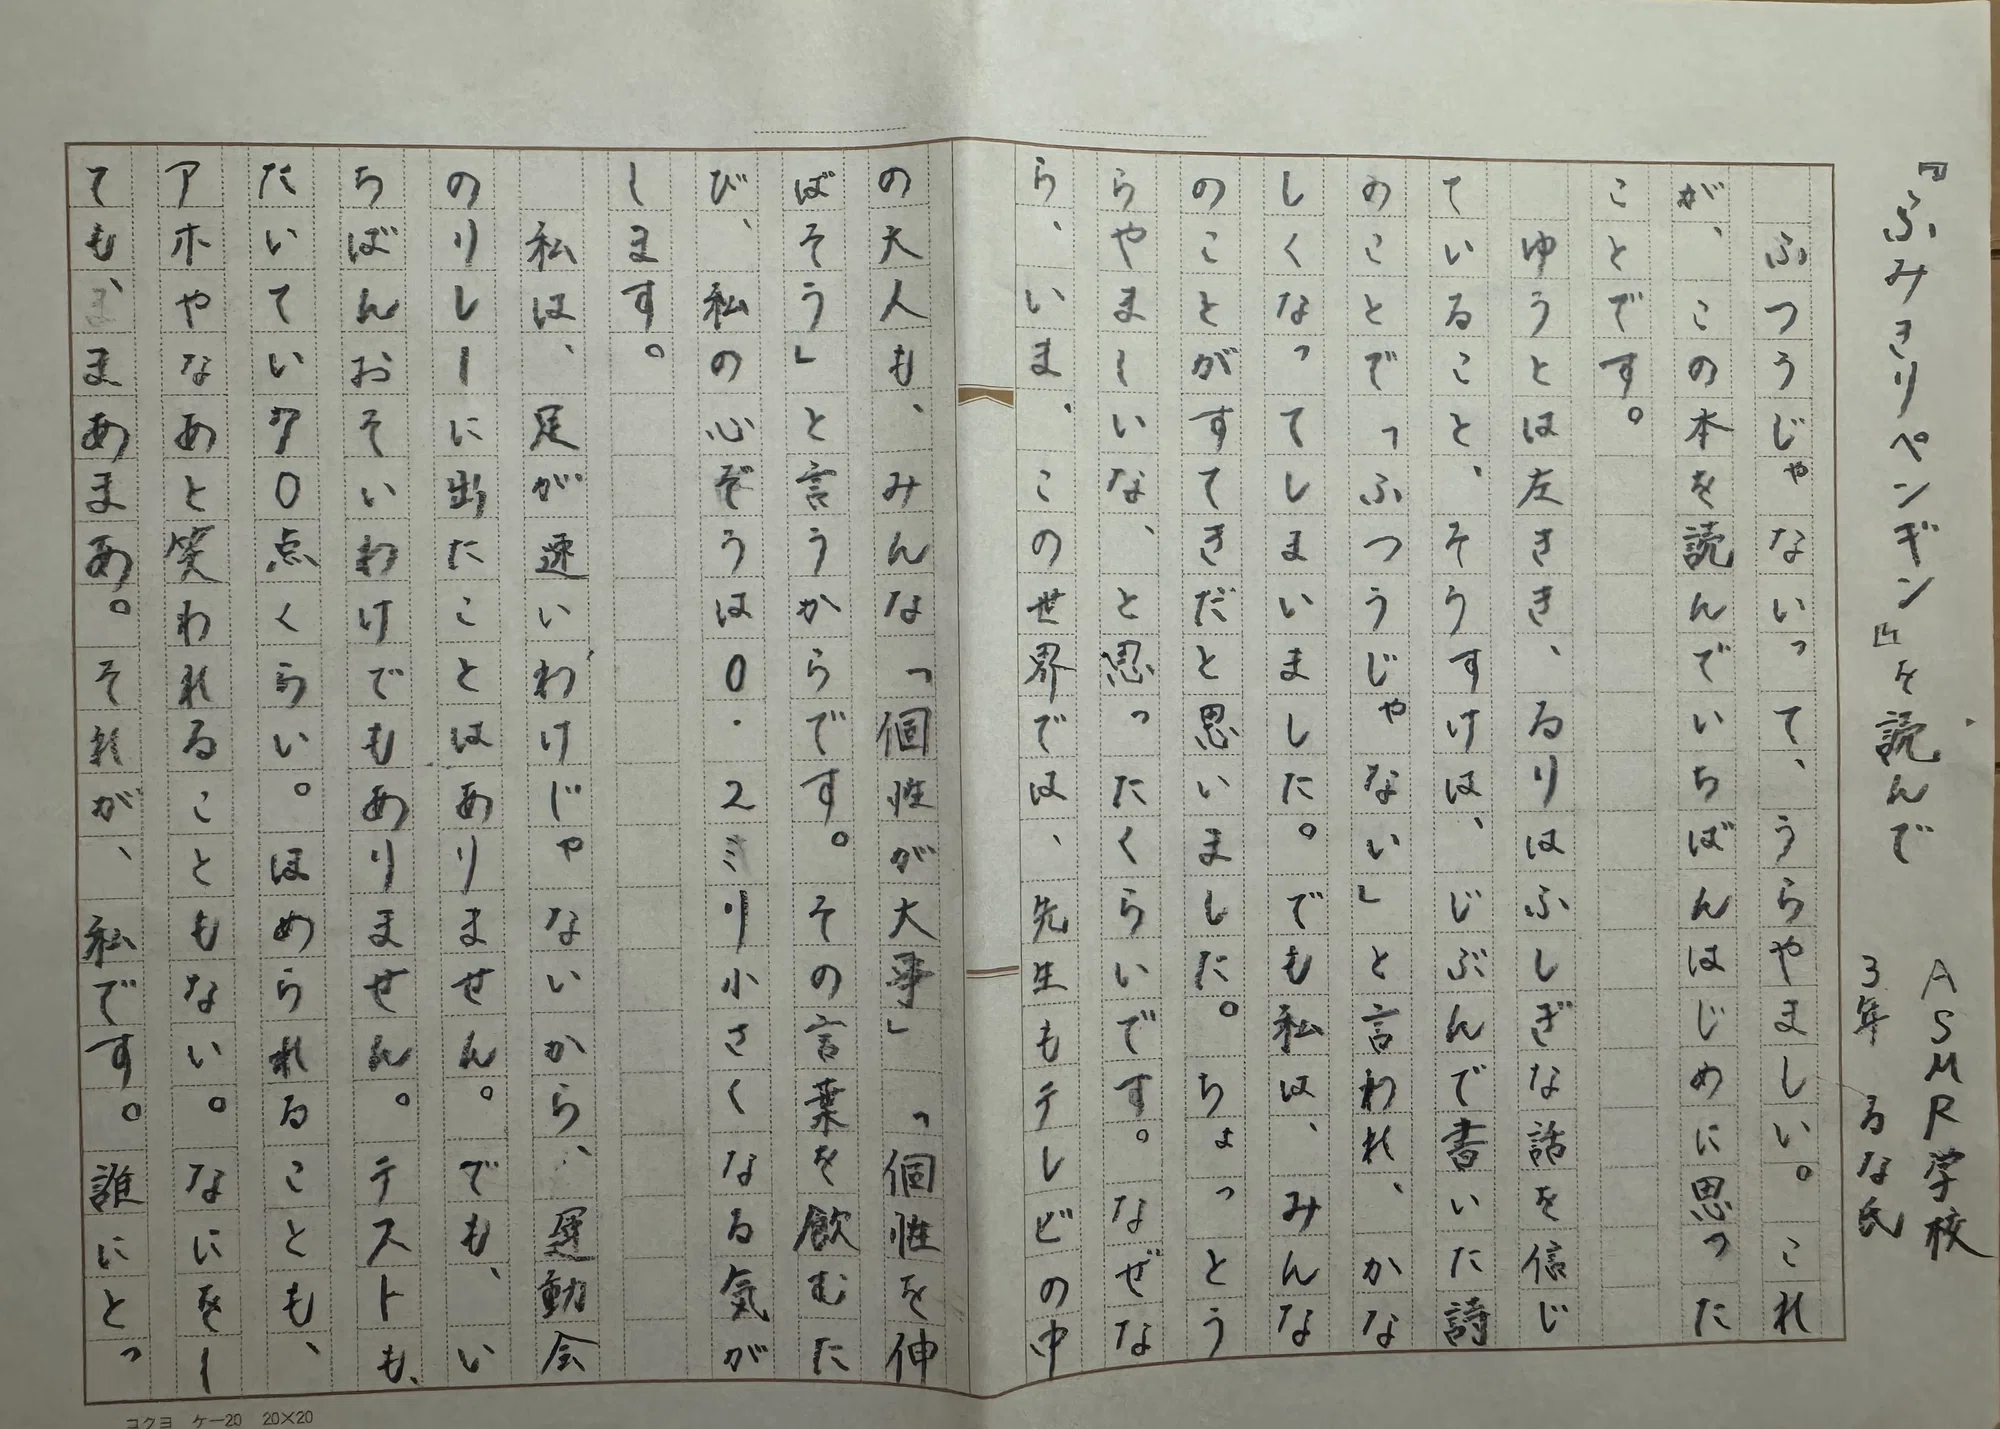 『ふみきりペンギン』を読んで
ASMR学校
3年 るな氏
ふつうじゃないって、うらやましい。これ
が、この本を読んでいちばんはじめに思った
ことです。
ゆうとは左きき、るりはふしぎな話を信じ
ていること、そうすけは、じぶんで書いた詩
のことで「ふつうじゃない」と言われ、かな
しくなってしまいました。でも私は、みんな
のことがすてきだと思いました。ちょっとう
らやましいな、と思ったくらいです。なぜな
ら、いま、この世界では、先生もテレビの中
の大人も、みんな「個性が大事」「個性を伸
ばそう」と言うからです。その言葉を飲むた
び、私の心ぞうは0.2ミリ小さくなる気が
します。
私は、足が速いわけじゃないから、運動会
のリレーに出たことはありません。でも、い
ちばんおそいわけでもありません。テストも、
だいたい70点くらい。ほめられることも、
アホやなあと笑われることもない。なにをし
ても、まあまあ。それが、私です。誰にとっ
コクヨ ケー20 20×20